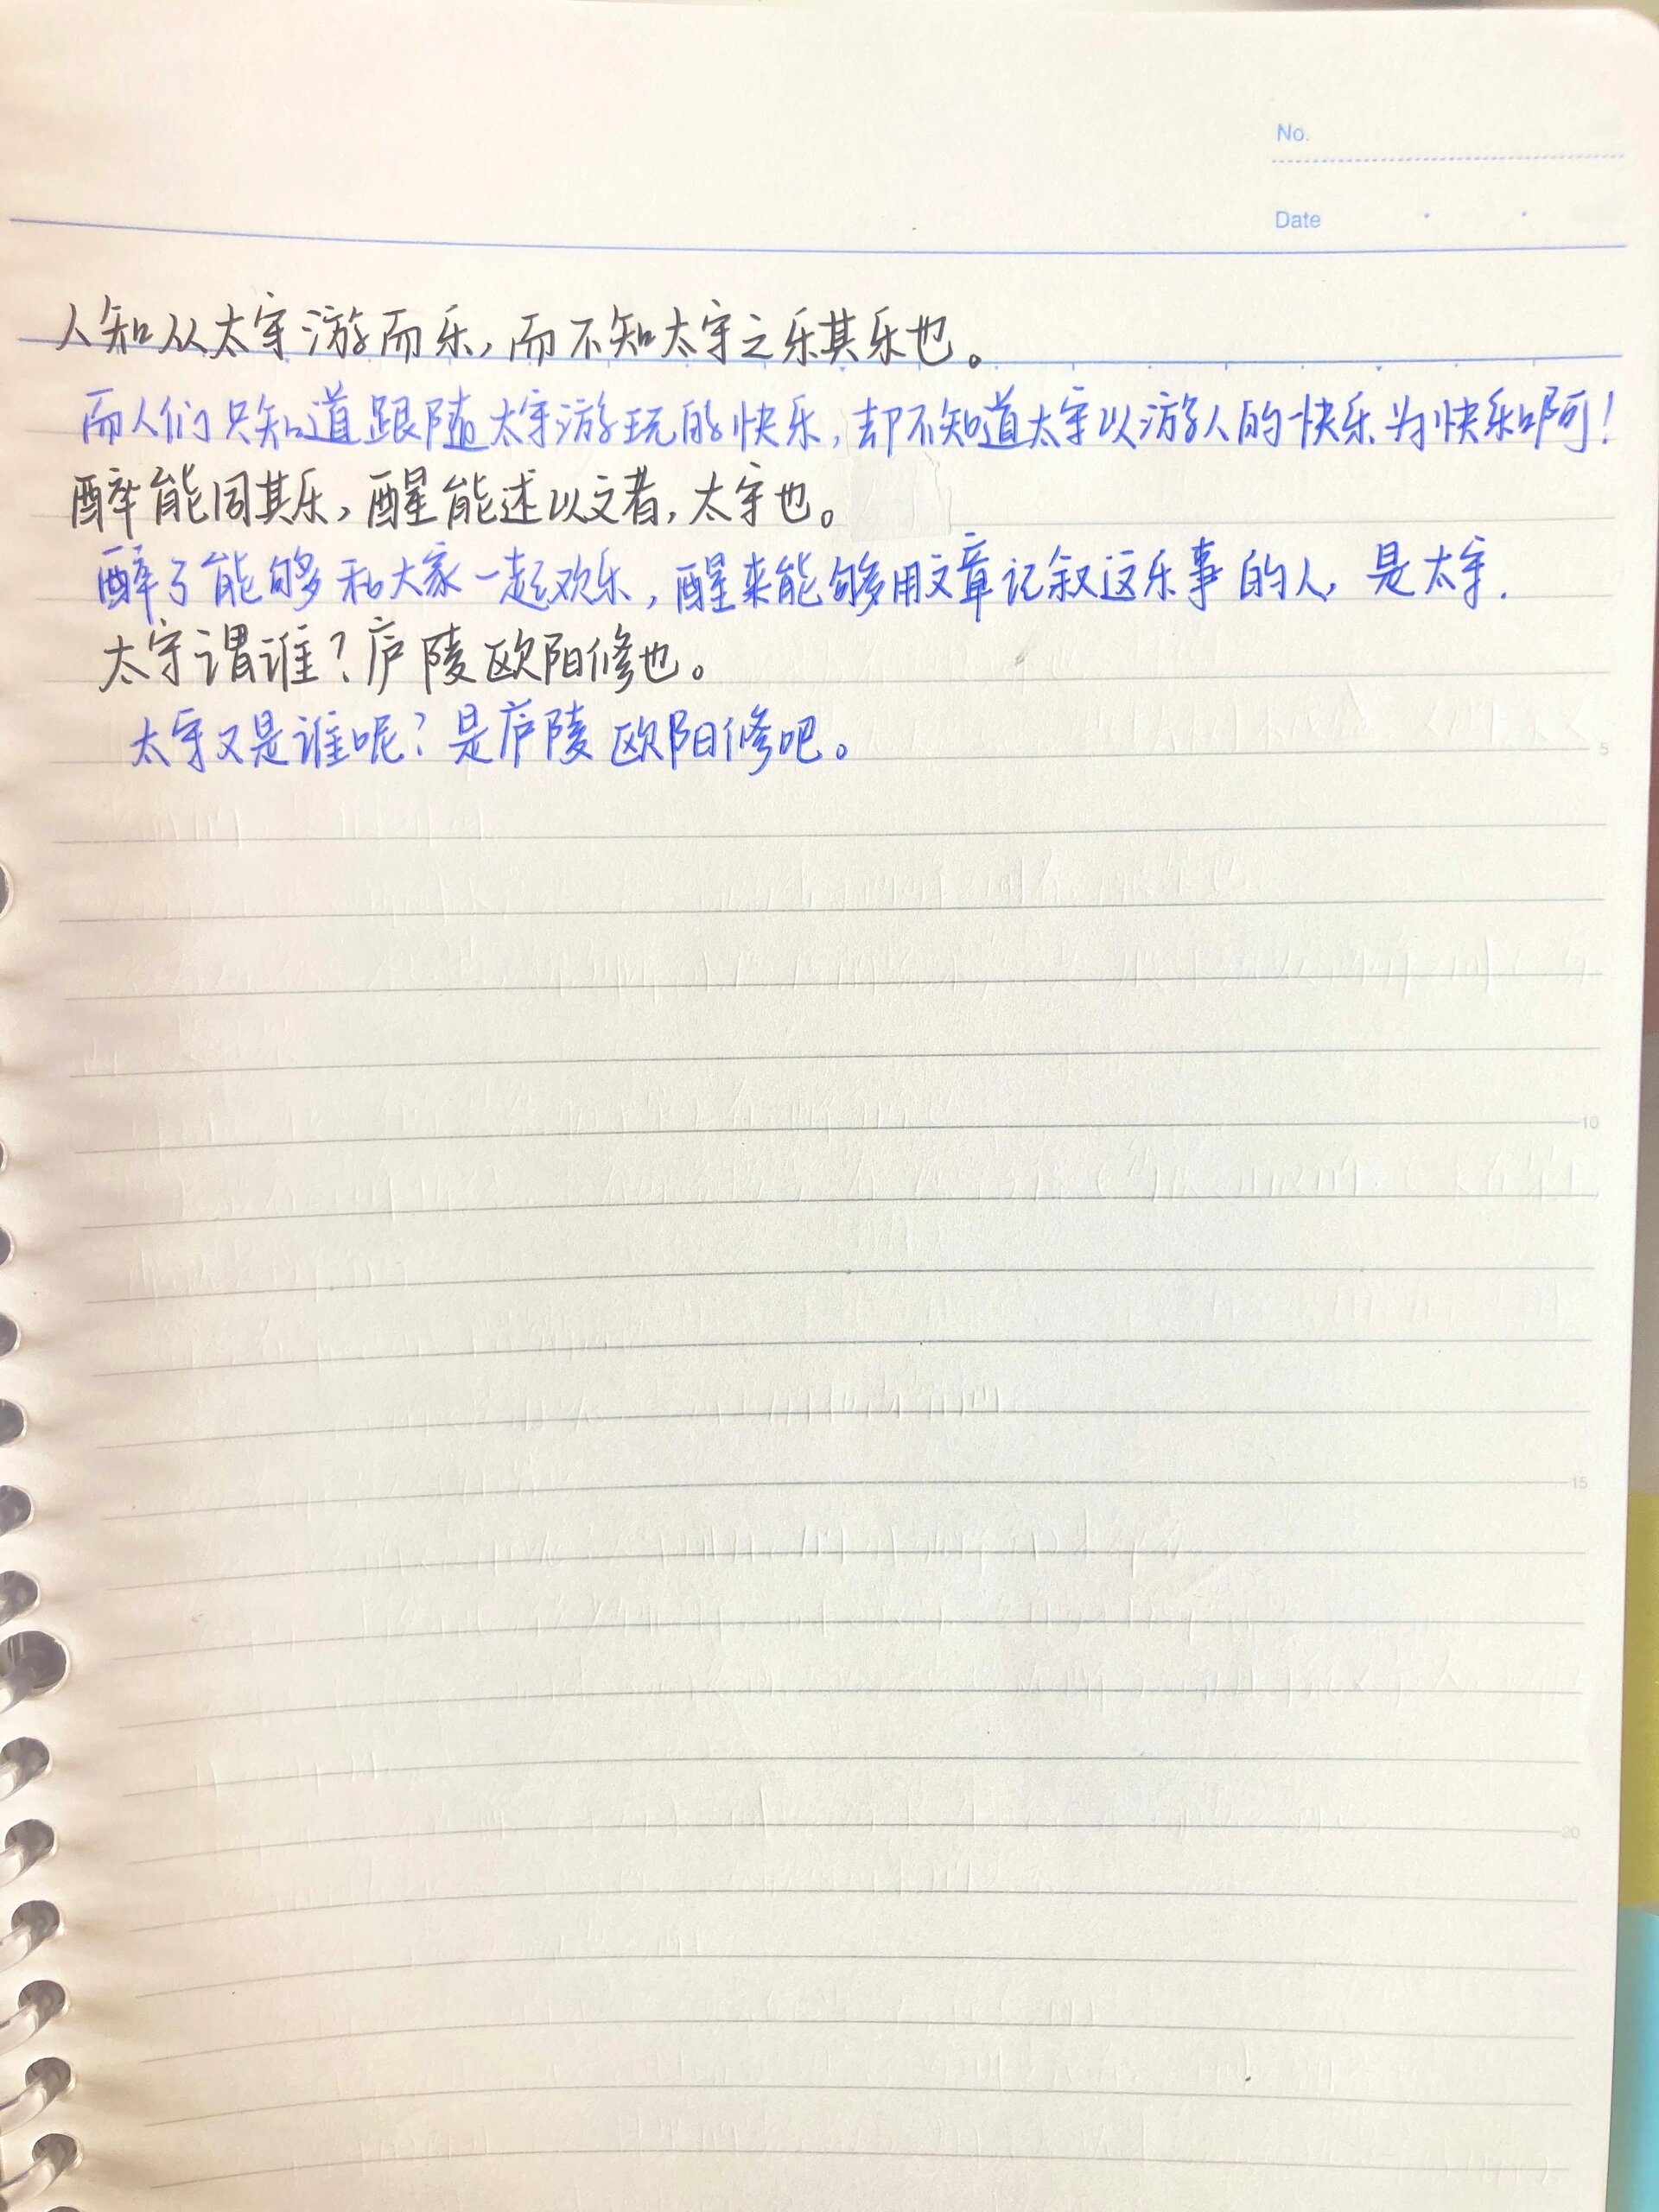 No.
Date
人知从太守游而乐，而不知太守之乐其乐也。
而人们只知道跟随太守游玩的快乐，却不知道太守以游人的快乐为快乐啊！
醉能同其乐，醒能述以文者，太守也。
醉了能够和大家一起欢乐，醒来能够用文章记叙这乐事的人，是太守.
太守谓谁？庐陵欧阳修也。
太守又是谁呢？是庐陵欧阳修吧。
5
10
15
20